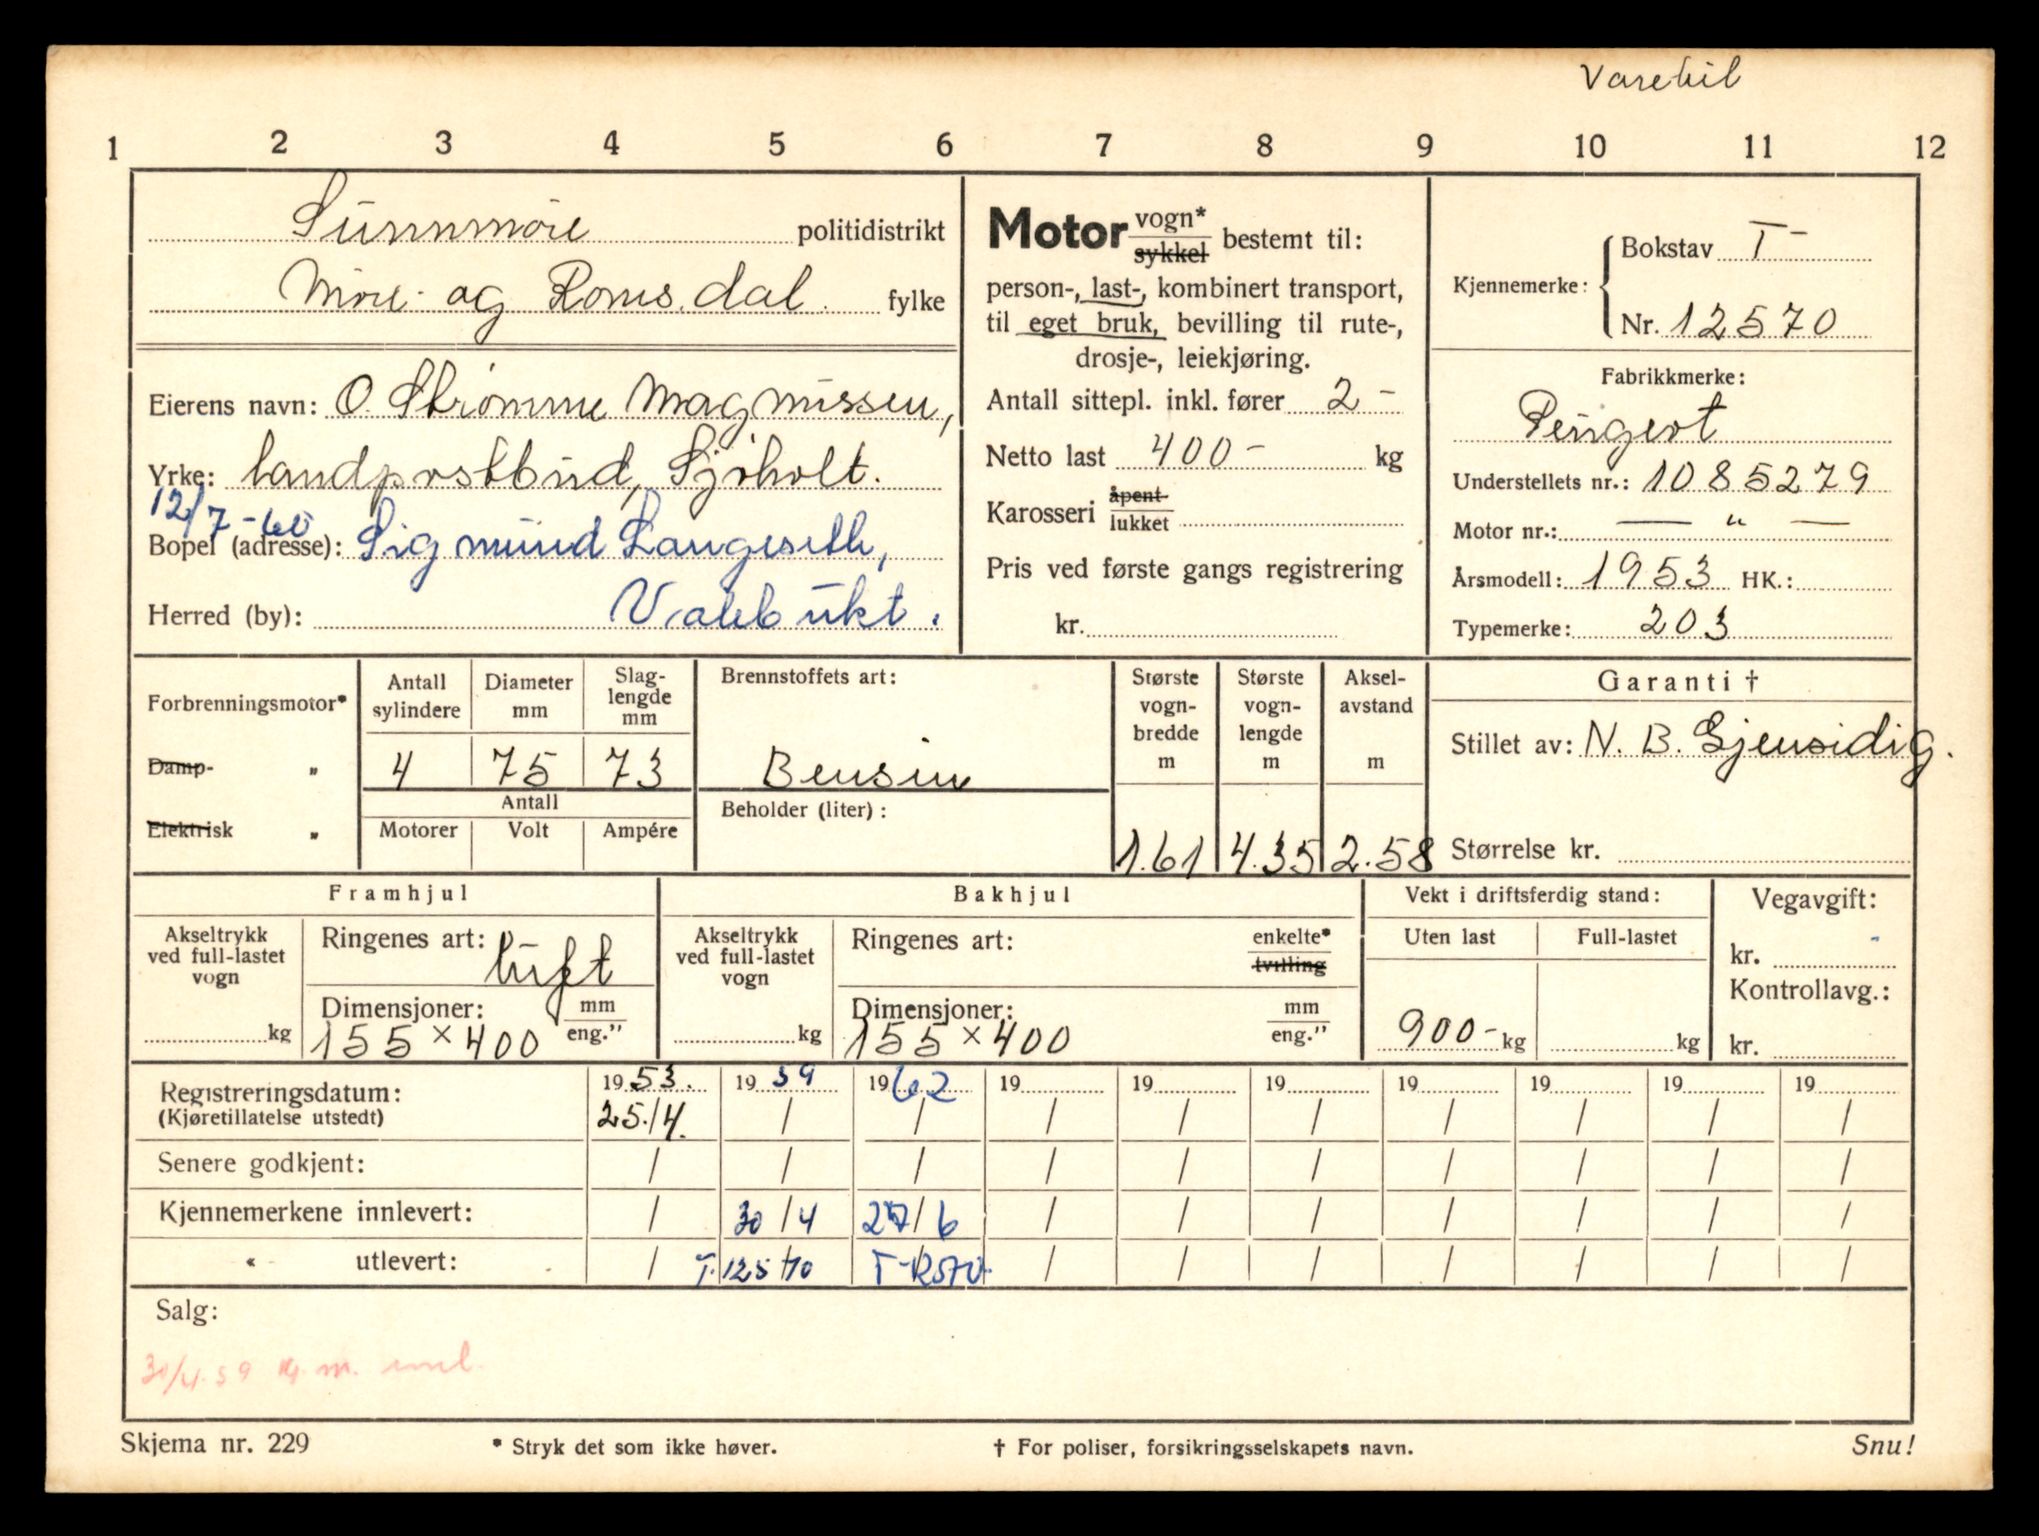 Varebil
1 2 3 4 5 6 7 8 9 10 11 12
Sunnmöre politidistrikt
Möre og Romsdal. fylke
Eierens navn: O. Strömme Magnussen,
Yrke: landpostbud, Sjöholt.
12/7-60
Bopel (adresse): Sigmund Langeseth,
Herred (by): Vatlebukt.
Motor vogn* sykkel bestemt til:
person-, last-, kombinert transport,
til eget bruk, bevilling til rute-,
drosje-, leiekjøring.
Antall sittepl. inkl. fører 2 -
Netto last 400 - kg
Karosseri åpent lukket
Pris ved første gangs registrering
kr.
Kjennemerke: Bokstav T-
Nr. 12570
Fabrikkmerke:
Peugeot
Understellets nr.: 1085279
Motor nr.: — " —
Årsmodell: 1953 HK.:
Typemerke: 203
Forbrenningsmotor*
Damp- "
Elektrisk "
Antall sylindere Diameter mm Slag-lengde mm
4 75 73
Antall
Motorer Volt Ampére
Brennstoffets art:
Bensin
Beholder (liter):
Største vogn-bredde m Største vogn-lengde m Aksel-avstand m
1.61 4.35 2.58
Garanti †
Stillet av: N. B. Gjensidig.
Størrelse kr.
Framhjul
Akseltrykk ved full-lastet vogn
kg
Ringenes art: luft
Dimensjoner: mm eng."
155 x 400
Bakhjul
Akseltrykk ved full-lastet vogn
kg
Ringenes art: enkelte* tvilling
Dimensjoner: mm eng."
155 x 400
Vekt i driftsferdig stand:
Uten last Full-lastet
900- kg kg
Vegavgift:
kr. -
Kontrollavg.:
kr.
Registreringsdatum: 1953. 1959 1962 19 19 19 19 19 19 19
(Kjøretillatelse utstedt) 25./4. / / / / / / / / /
Senere godkjent: / / / / / / / / / /
Kjennemerkene innlevert: / 30/4 27/6 / / / / / / /
" utlevert: / T-12570 T-12570 / / / / / / /
Salg:
30/4.59 kj. m. innl.
Skjema nr. 229 * Stryk det som ikke høver. † For poliser, forsikringsselskapets navn. Snu!